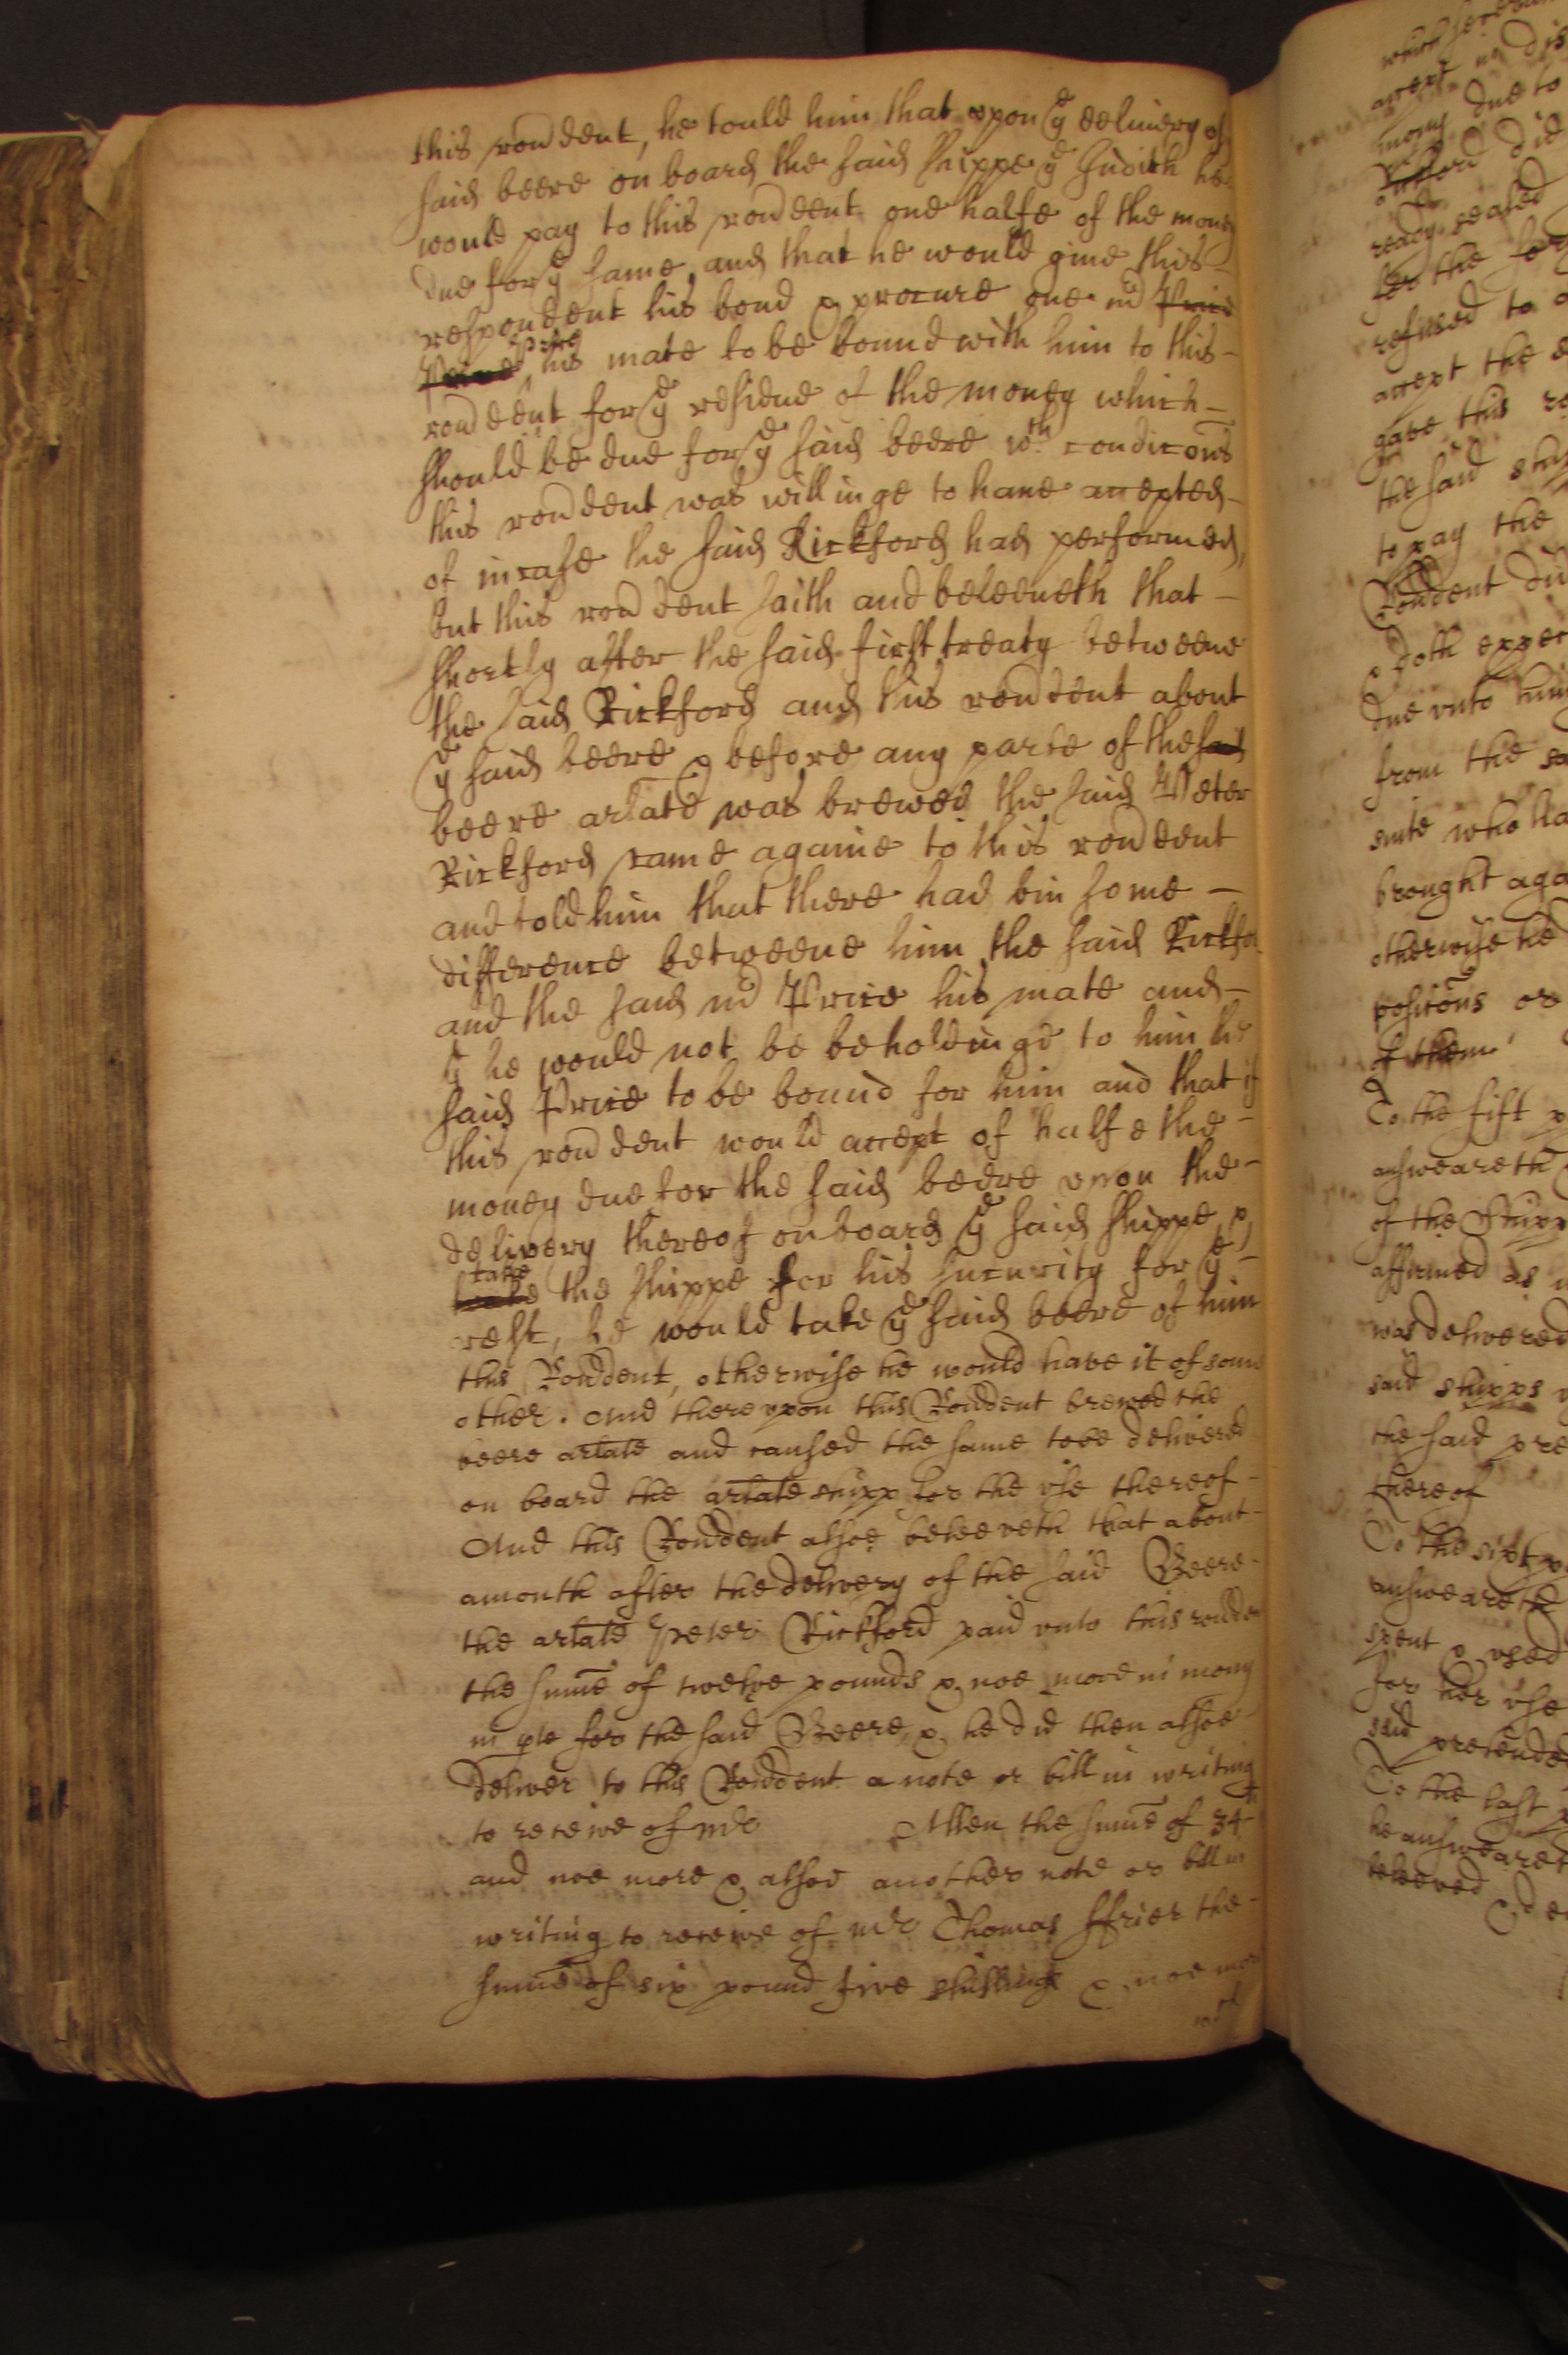 this rondent, he tould him that upon ye delivery of
said beere on board the said shippe ye Judith he
would pay to this rondent one halfe of the money
due for ye same, and that he would give this
respondent his bond & procure one mr Price
Price his mate to be bound with him to this
rondent for ye residue of the money which
should be due for ye said beere wch condicons
this rondent was willinge to have accepted
of in case the said Rickford had performed,
but this rondent saith and beleeveth that
shortly after the said first treaty betweene
the said Rickford and this rondent about
ye said beere & before any parte of the said
beere arlate was brewed the said Peter
Rickford came againe to this rondent
and told him that there had bin some
difference betweene him the said Rickfo
and the said mr Price his mate and
yt he would not be beholdinge to him the
said Price to be bound for him and that if
this rondent would accept of halfe the
money due for the said beere upon the
delivery thereof on board ye said shippe &
take
the shippe for his security for ye
rest, he would take ye said beere of him
this Rondent, otherwise he would have it of some
other. And thereupon this Rondent brewed the
beere arlate and caused the same to be delivered
on board the arlate shipp for the use thereof
And this Rondent alsoe beleeveth that about
a month after the delivery of the said Beere
the arlate Peter Rickford paid unto this ronden
the sume of twelve pounds & noe more in mony
in pte for the said Beere, & he did then alsoe
deliver to this Rondent a note or bill in writing
to receive of mr Allen the sume of 34
and noe more & alsoe another note or bill in
writing to receive of mr Thomas ffrier the
sume of six pound five shillings & noe mo
wch
which
accept
mony due to
Rickford did
ready sealed
for the
refused to
accept the
gave this
the said
to pay the
Rondent di
doth expec
due unto him
from the
suite who ha
brought aga
otherwise he
positions or
of them
To the fift p
answeareth
of the Shipp
affirmed as
was delivered
said shipps
the said pre
thereof
To the sixt p
answeareth
spent & used
for her use
said pretended
To the last
he answeareth
beleeved